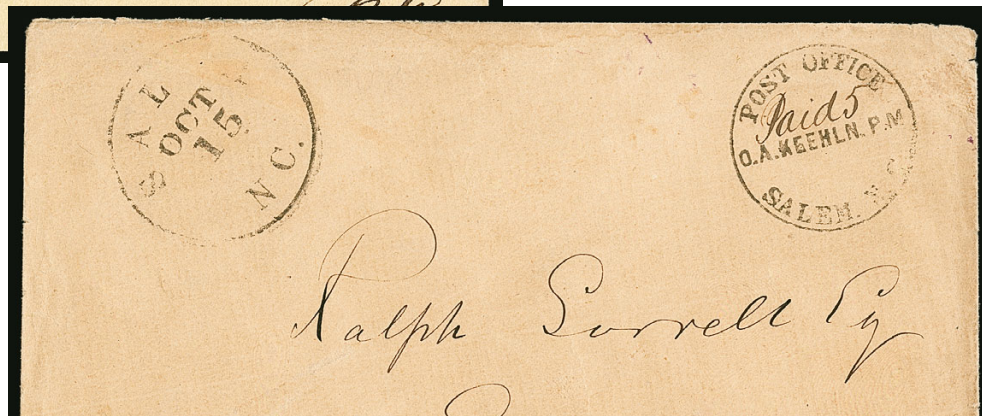 SAL
OCT
15
N C.
POST OFFICE
Paid 5
O.A. KEEHLN. P.M
SALEM. N.C.
Ralph Gorrell Esq